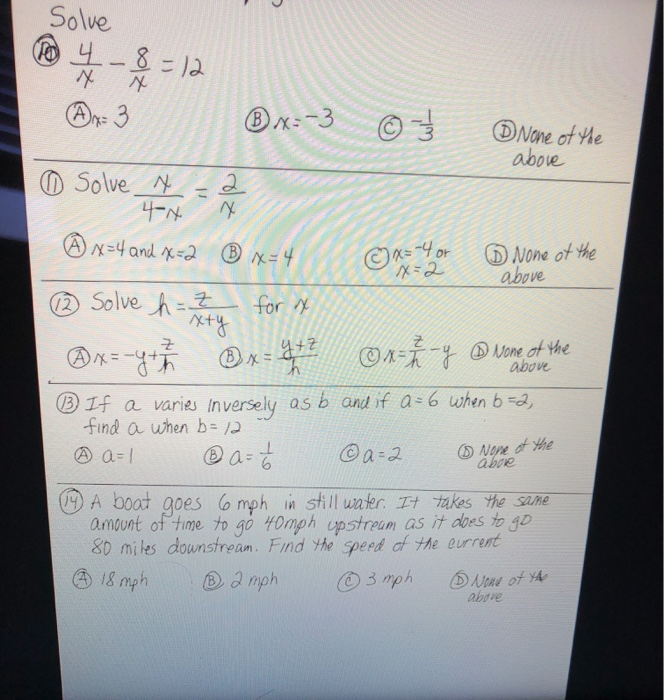 Solve
⑩ 4/x - 8/x = 12
Ⓐ x= 3 Ⓑ x=-3 Ⓒ -1/3 Ⓓ None of the
above
⑪ Solve x/(4-x) = 2/x
Ⓐ x=4 and x=2 Ⓑ x=4 Ⓒ x=-4 or Ⓓ None of the
x=2 above
⑫ Solve h = z/(x+y) for x
Ⓐ x=-y+z/h Ⓑ x= (y+z)/h Ⓒ x=z/h -y Ⓓ None of the
above
⑬ If a varies inversely as b and if a=6 when b=2,
find a when b= 12
Ⓐ a=1 Ⓑ a= 1/6 Ⓒ a=2 Ⓓ None of the
above
⑭ A boat goes 6 mph in still water. It takes the same
amount of time to go 40mph upstream as it does to go
80 miles downstream. Find the speed of the current
Ⓐ 18 mph Ⓑ 2 mph Ⓒ 3 mph Ⓓ None of the
above